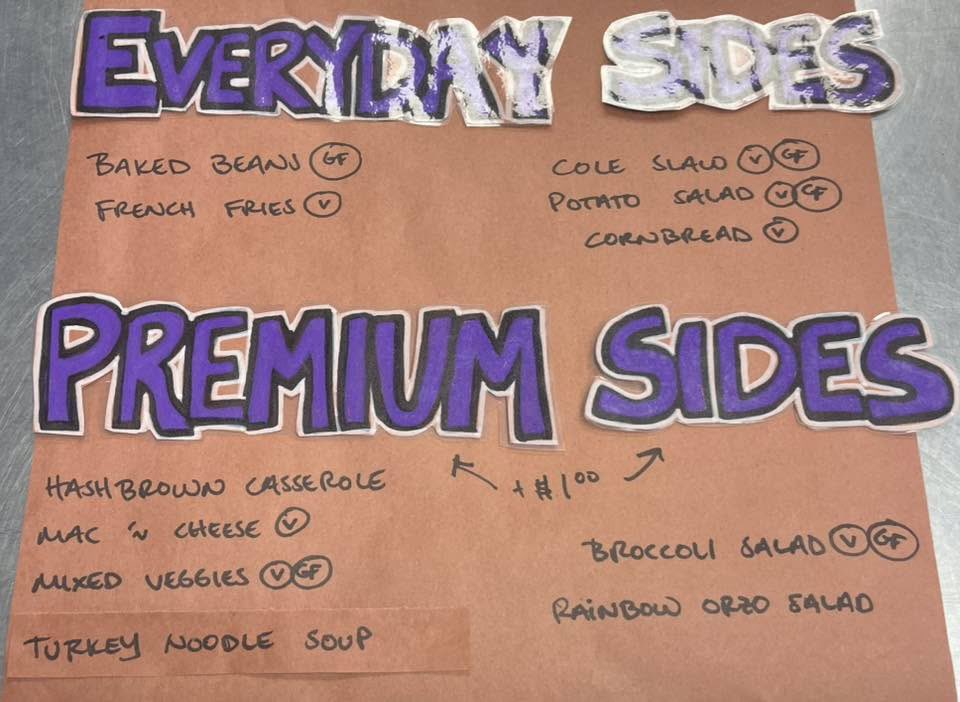 EVERYDAY SIDES
BAKED BEANS GF
FRENCH FRIES V
COLE SLAW V GF
POTATO SALAD V GF
CORNBREAD V
PREMIUM SIDES
+ $1.00
HASHBROWN CASSEROLE
MAC 'N CHEESE V
MIXED VEGGIES V GF
TURKEY NOODLE SOUP
BROCCOLI SALAD V GF
RAINBOW ORZO SALAD